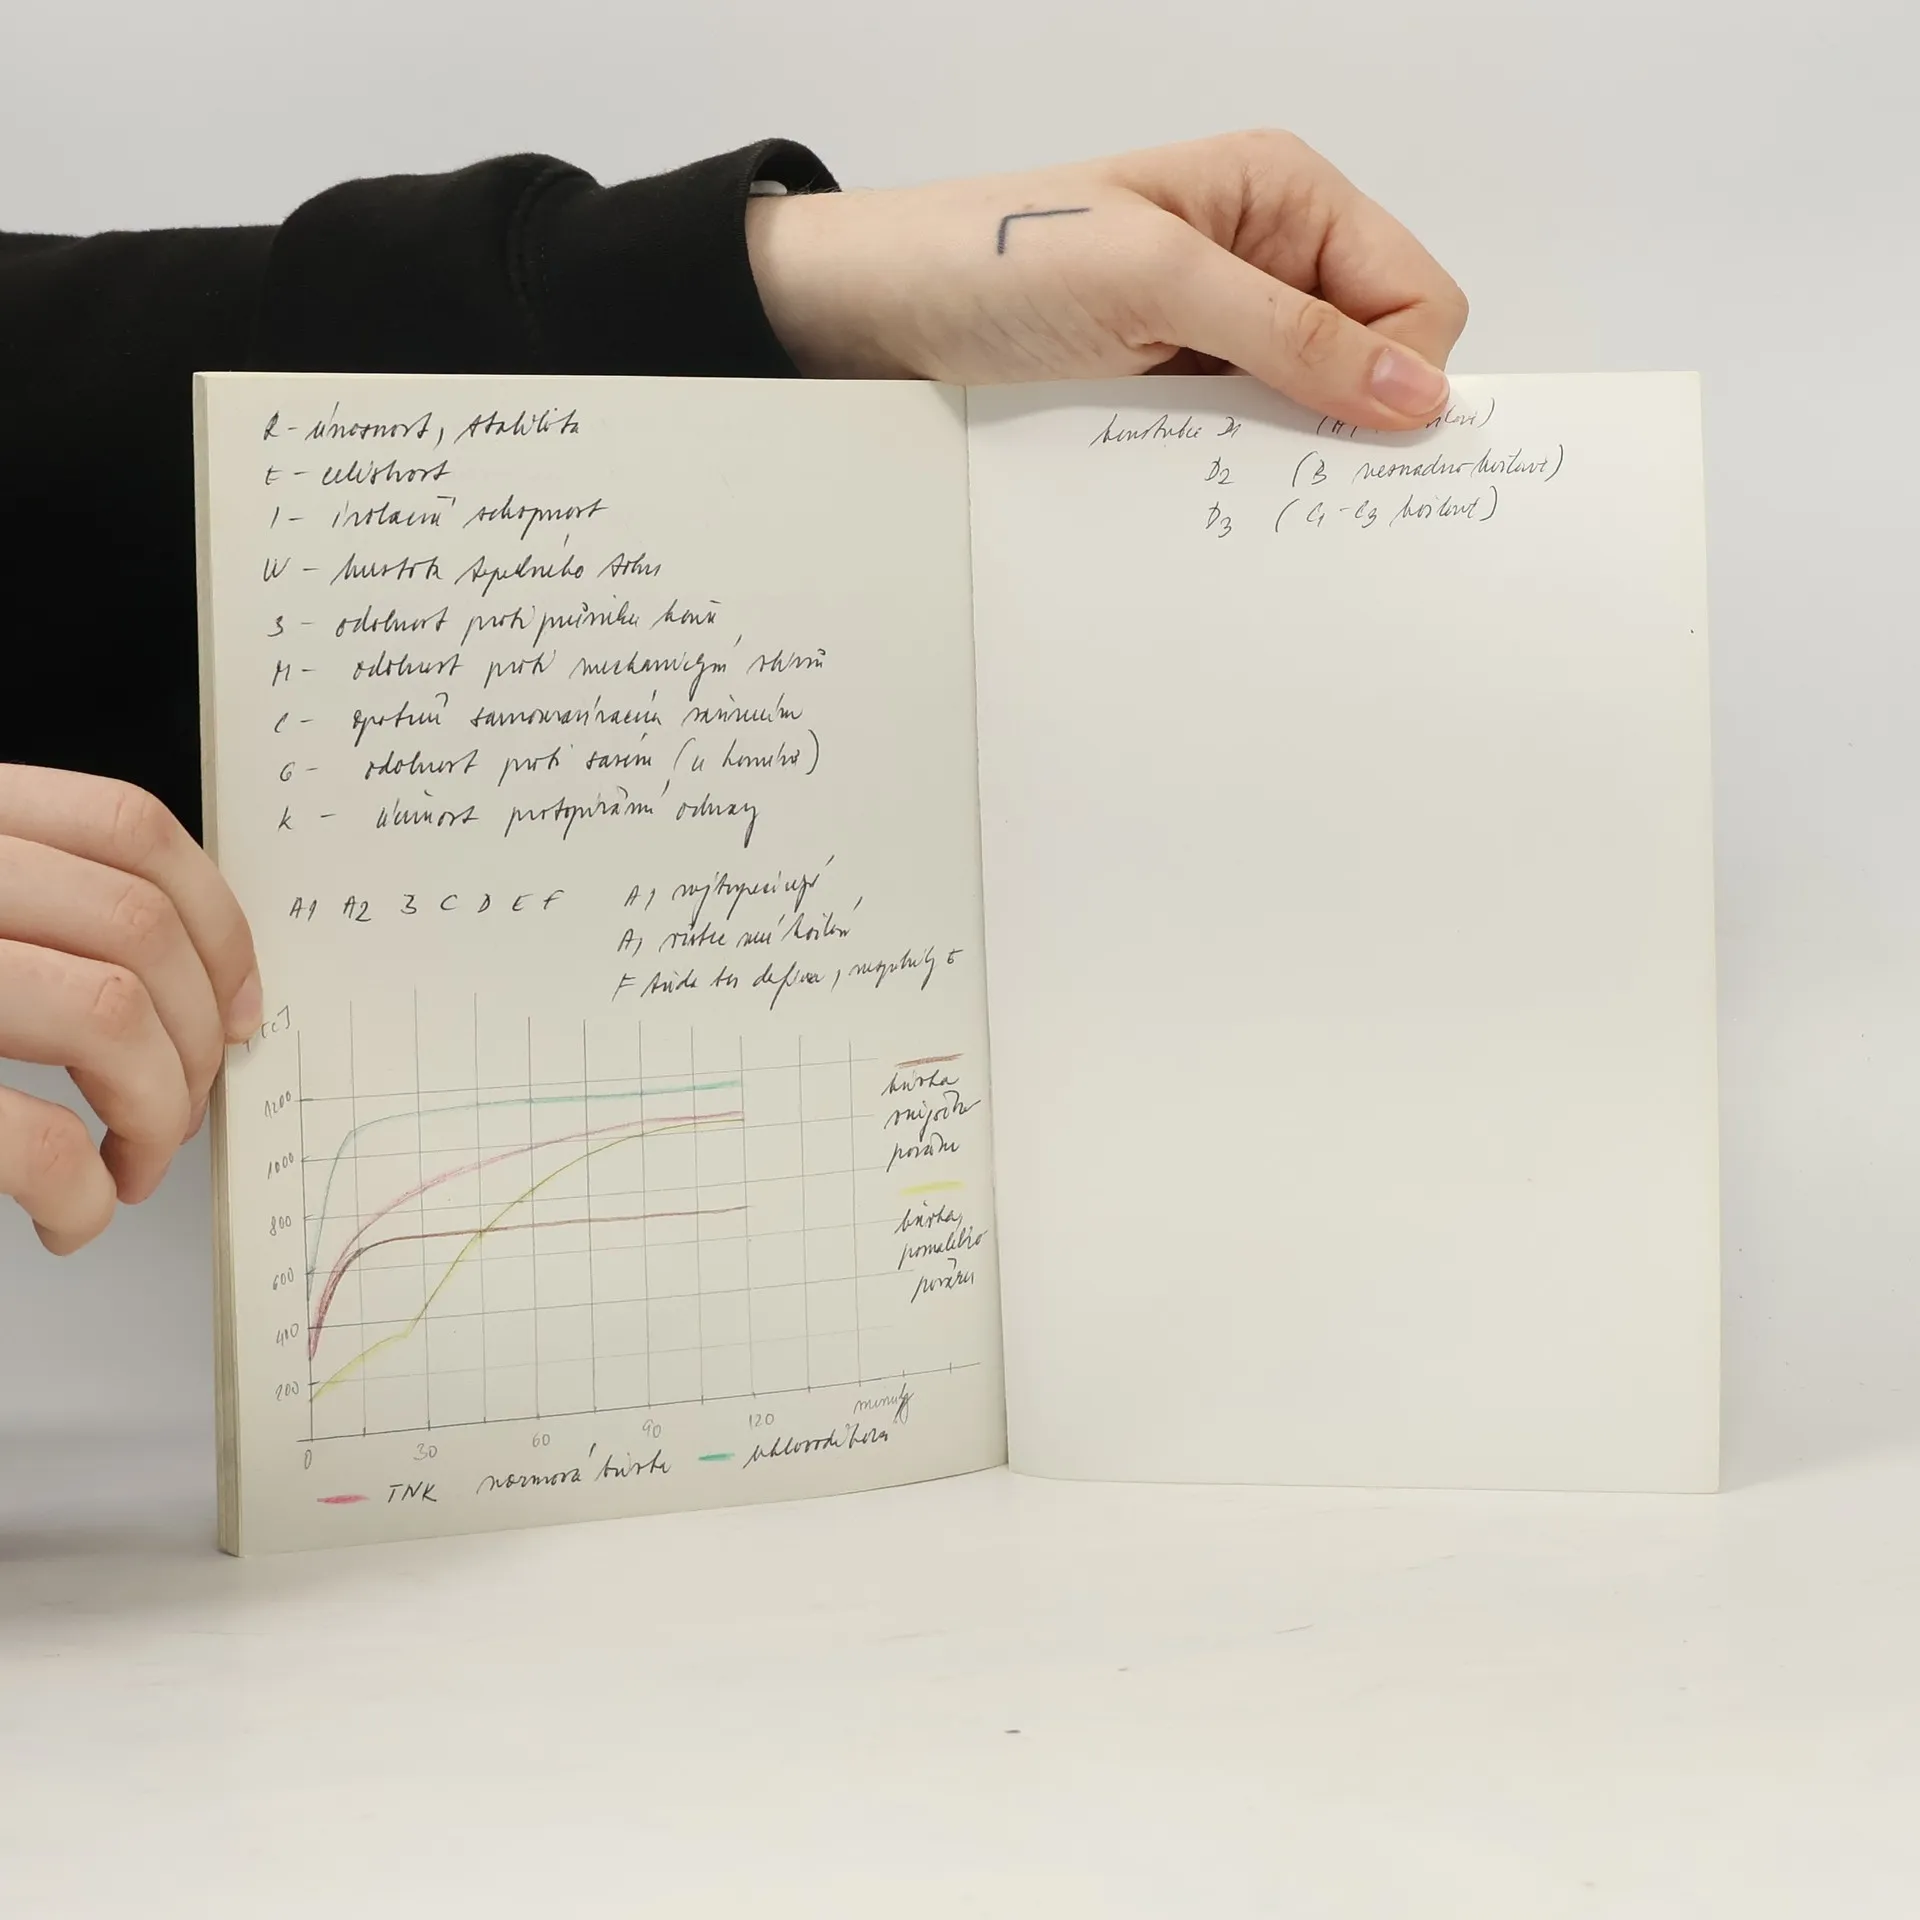 R - únosnost, stabilita
E - celistvost
I - izolační schopnost
W - hustota tepelného toku
S - odolnost proti průniku kouře
M - odolnost proti mechanickým vlivům
C - opatření samozavíracím zařízením
G - odolnost proti sazím (u komínů)
K - účinnost protipožární ochrany
A1 A2 B C D E F
A1 nejbezpečnější
A1 vůbec není hořlavá
F třída bez
T [C]
1200
1000
800
600
400
200
0 30 60 90 120 minuty
TNK normová křivka
uhlovodíková
křivka
vnějšího
požáru
křivka
pomalého
požáru
konstrukce D1
D2 (B nesnadno hořlavé)
D3 (C1 - C3 hořlavé)